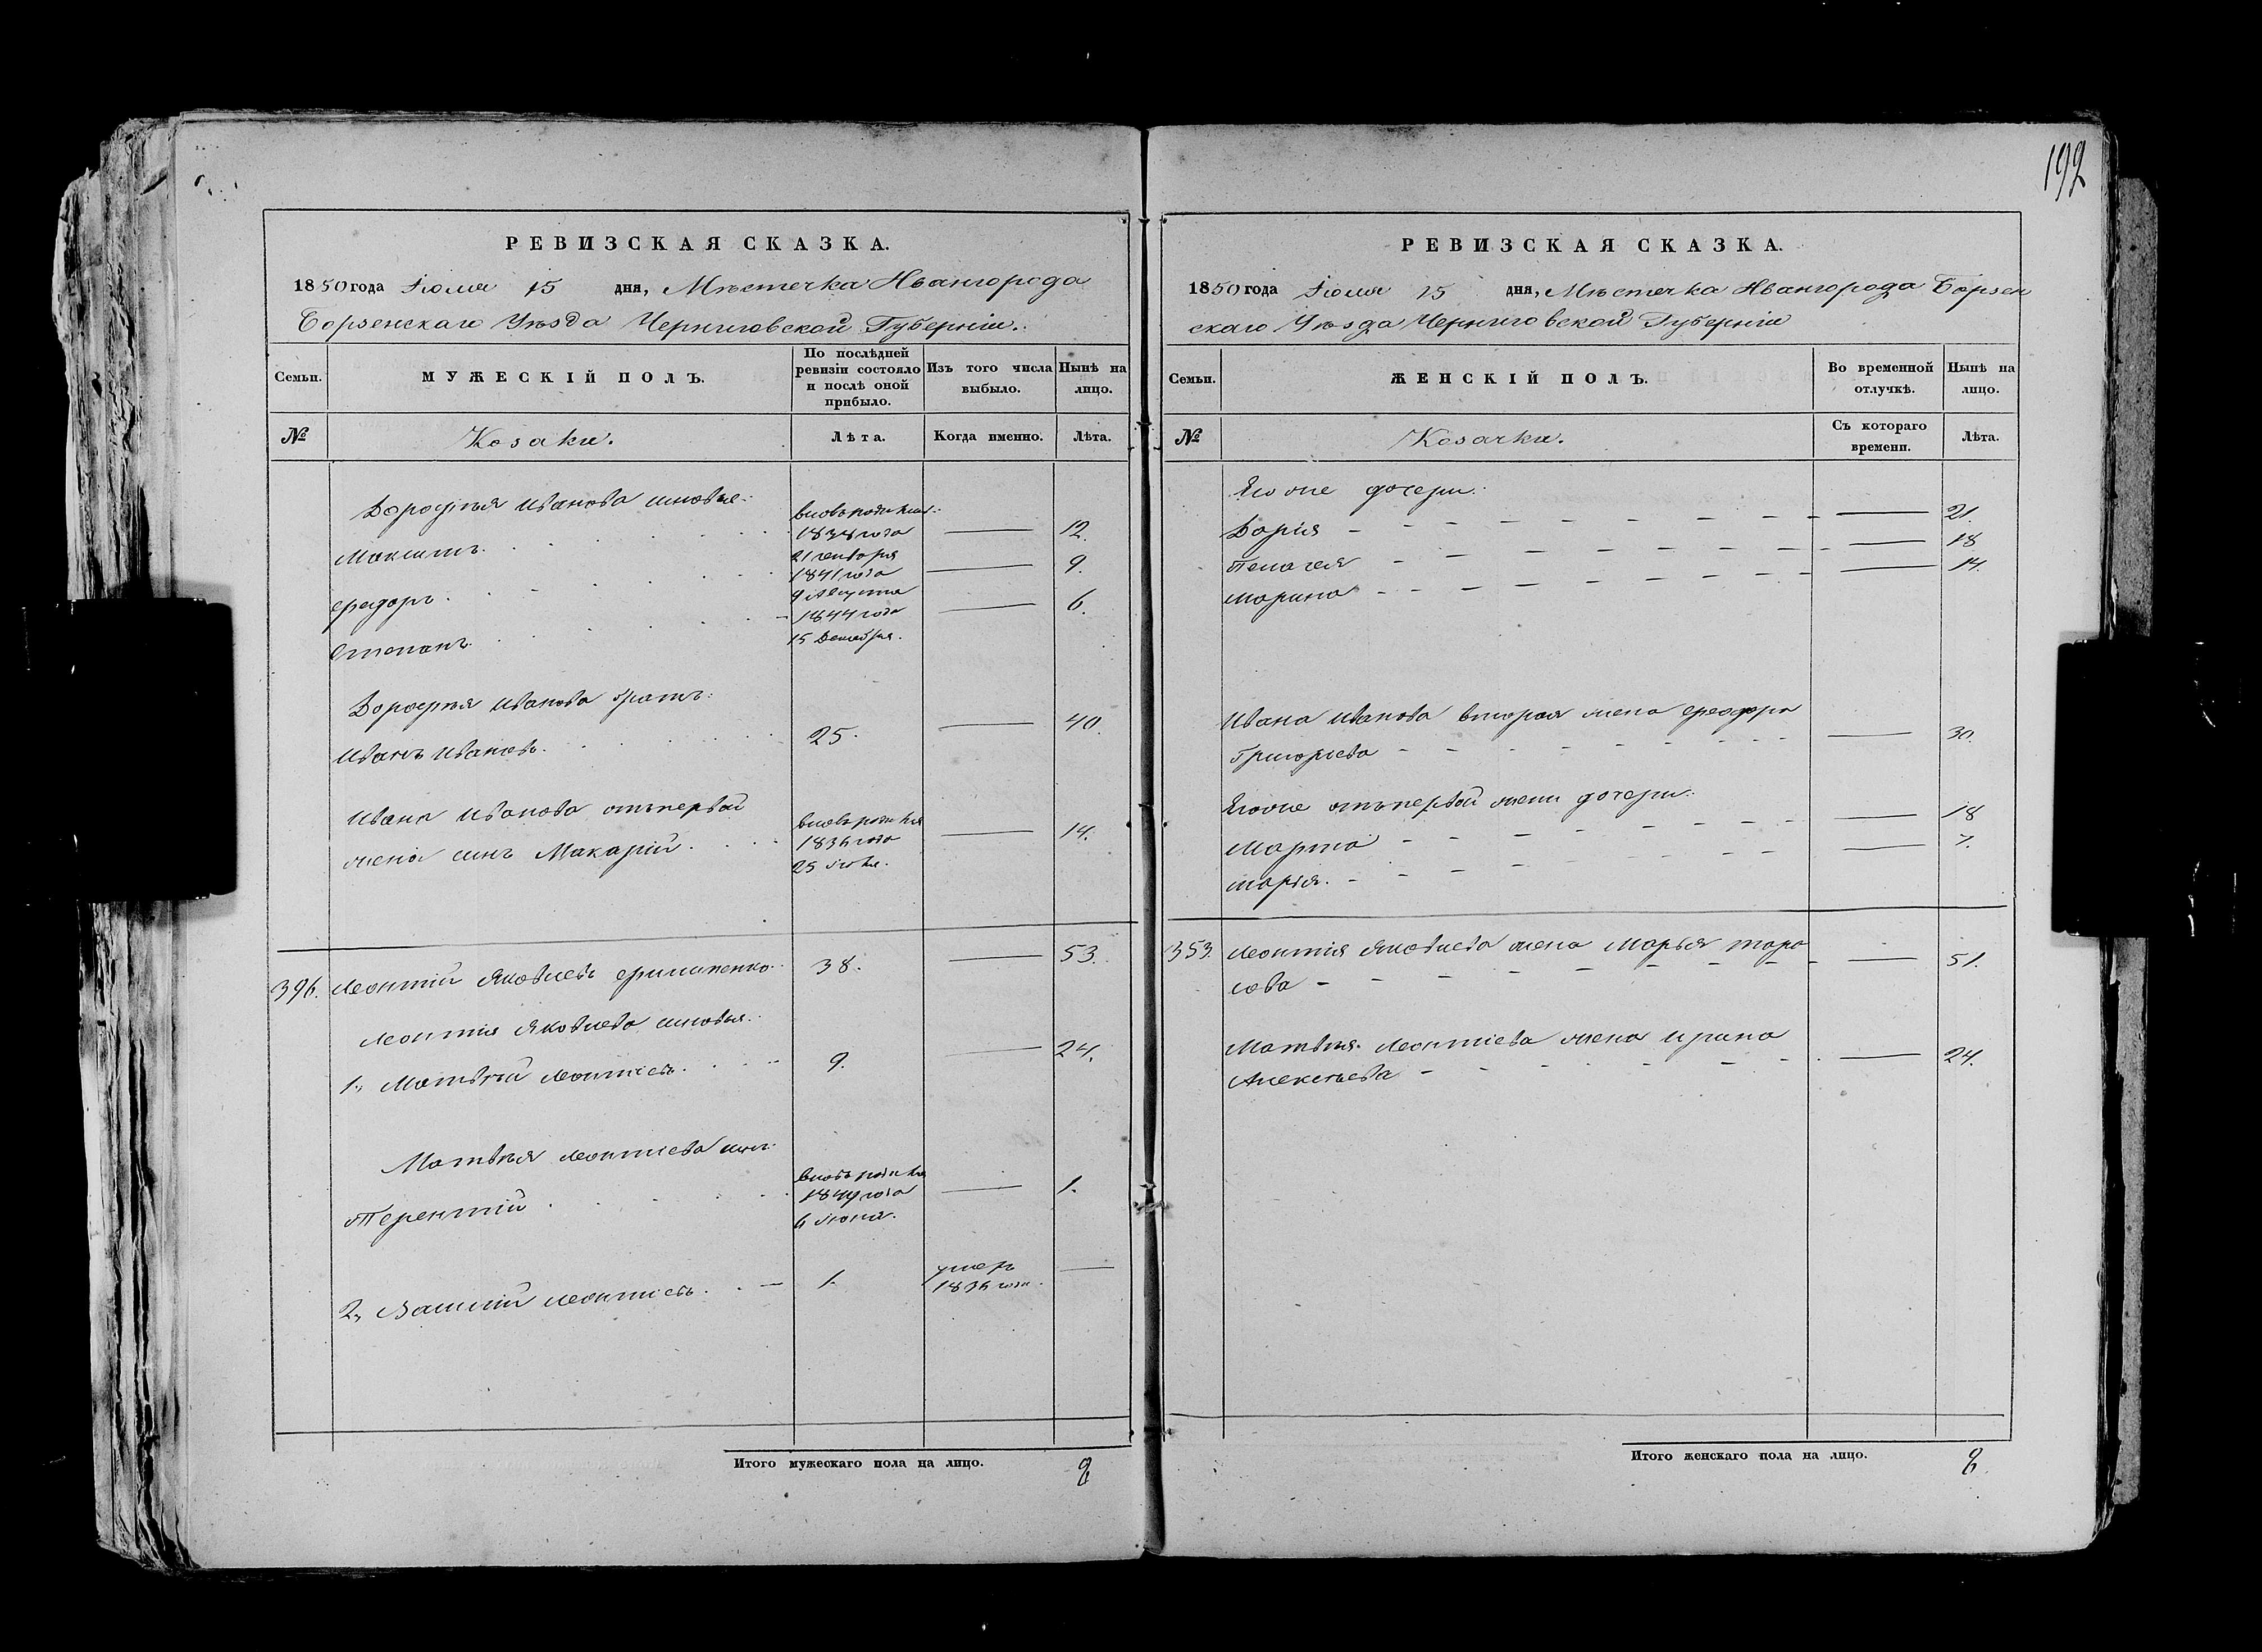 192
РЕВИЗСКАЯ СКАЗКА.
1850 года Іюля 15 дня, Мѣстечка Ивангорода
Борзенскаго Уѣзда Черниговской Губерніи.
Семьи.
МУЖЕСКІЙ ПОЛЪ.
По послѣдней ревизіи состояло и послѣ оной прибыло.
Изъ того числа выбыло.
Нынѣ на лицо.
№
Козаки.
Лѣта.
Когда именно.
Лѣта.
Дорофѣя Иванова сыновья:
Максимъ. вновь рожден: 1838 года 21 генваря — 12.
Ѳедоръ. 1841 года 9 Августа — 9.
Степанъ. 1844 года 15 Декабря. — 6.
Дорофѣя Иванова братъ:
Иванъ Ивановъ. 25. — 40.
Ивана Иванова отъ первой
жены сынъ Макарій. вновь рожден 1836 года — 14.
396. Леонтій Яковлевъ Филипенко. 38. — 53.
Леонтія Яковлева сыновья:
1, Матвѣй Леонтіевъ. 9. — 24.
Матвѣя Леонтіева сынъ:
Терентій. вновь рожден 1849 года 6 Іюня. — 1.
2, Василій Леонтіевъ. — 1. умеръ 1836 года. —
Итого мужескаго пола на лицо. 8
РЕВИЗСКАЯ СКАЗКА.
1850 года Іюля 15 дня, Мѣстечка Ивангорода Борзен
скаго Уѣзда Черниговской Губерніи
Семьи.
ЖЕНСКІЙ ПОЛЪ.
Во временной отлучкѣ.
Нынѣ на лицо.
№
Козачки.
Съ котораго времени.
Лѣта.
Его же дочери:
Дарія — 21.
Пелагея — 18
Марина — 14.
Ивана Иванова вторая жена Ѳеодора
Григоріева — 30.
Его же отъ первой жены дочери:
Марфа — 18
Марія. — 7.
353. Леонтія Яковлева жена Марья Тара
сова — 51.
Матвѣя Леонтіева жена Ирина
Алексѣева — 24.
Итого женскаго пола на лицо. 8.